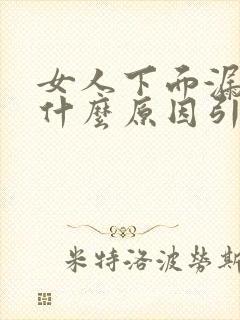 女人下面漏
什麼原因引
米特洛波勞斯